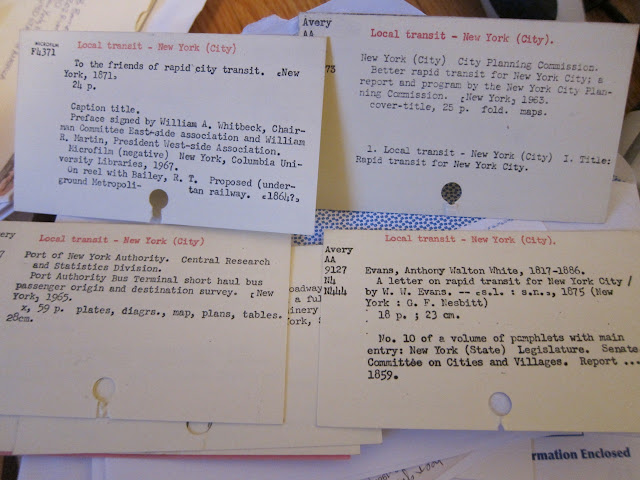 MICROFILM
F4371
Local transit - New York (City)
To the friends of rapid city transit. [New
York, 1871]
24 p.
Caption title.
Preface signed by William A. Whitbeck, Chair-
man Committee East-side association and William
R. Martin, President West-side Association.
Microfilm (negative) New York, Columbia Uni-
versity Libraries, 1967.
On reel with Bailey, R. T. Proposed (under-
ground Metropoli- tan railway. [1864?]
Avery
AA
73
Local transit - New York (City).
New York (City) City Planning Commission.
Better rapid transit for New York City; a
report and program by the New York City Plan-
ning Commission. [New York, 1963.
cover-title, 25 p. fold. maps.
1. Local transit - New York (City) I. Title:
Rapid transit for New York City.
very
7
Local transit - New York (City)
Port of New York Authority. Central Research
and Statistics Division.
Port Authority Bus Terminal short haul bus
passenger origin and destination survey. [New
York, 1965.
x, 59 p. plates, diagrs., map, plans, tables.
28cm.
oadway
a ful
inery
ork, S
Avery
AA
9127
N4
N444
Local transit - New York (City).
Evans, Anthony Walton White, 1817-1886.
A letter on rapid transit for New York City /
by W. W. Evans. -- [s.l. : s.n.], 1875 (New
York : G. F. Nesbitt)
18 p. ; 23 cm.
No. 10 of a volume of pamphlets with main
entry: New York (State) Legislature. Senate
Committee on Cities and Villages. Report ...
1859.
rmation Enclosed